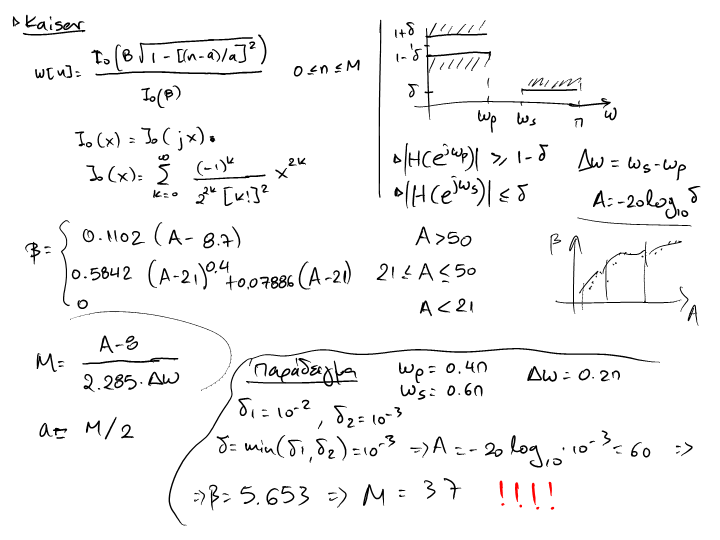 ▷ Kaiser
w[n] = I₀(β√(1 - [(n-a)/a]²)) / I₀(β)   0 ≤ n ≤ M
I₀(x) = J₀(jx).
J₀(x) = Σ_{k=0}^{∞} (-1)^k / (2^{2k} [k!]²) x^{2k}
1+δ
1-δ
δ
ωp ωs π ω
▷ |H(e^{jωp})| ≥ 1-δ   Δω = ωs-ωp
▷ |H(e^{jωs})| ≤ δ   A = -20log₁₀δ
β = { 0.1102 (A-8.7)   A>50
0.5842 (A-21)^{0.4} + 0.07886 (A-21)   21 ≤ A ≤ 50
0   A < 21
β
A
M = (A-8) / (2.285·Δω)
a = M/2
Παράδειγμα   ωp = 0.4π   Δω = 0.2π
ωs = 0.6π
δ₁ = 10⁻², δ₂ = 10⁻³
δ = min(δ₁, δ₂) = 10⁻³ ⇒ A = -20 log₁₀·10⁻³ = 60 ⇒
⇒ β = 5.653 ⇒ M = 37 !!!!